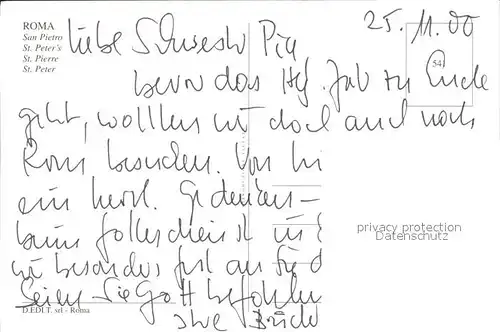 ROMA
San Pietro
St. Peter's
St. Pierre
St. Peter
25.11.00
541
Liebe Schwester Pia
bevor das Hlg. Jahr zu Ende
geht, wollten wir doch auch noch
Rom besuchen. Von hi
ein herzl. Gedenken –
beim Gottesdienst in
wir besonders fest an Sie d
Seien Sie Gott befohlen
Ihre
privacy protection
Datenschutz
D.EDI.T. srl - Roma